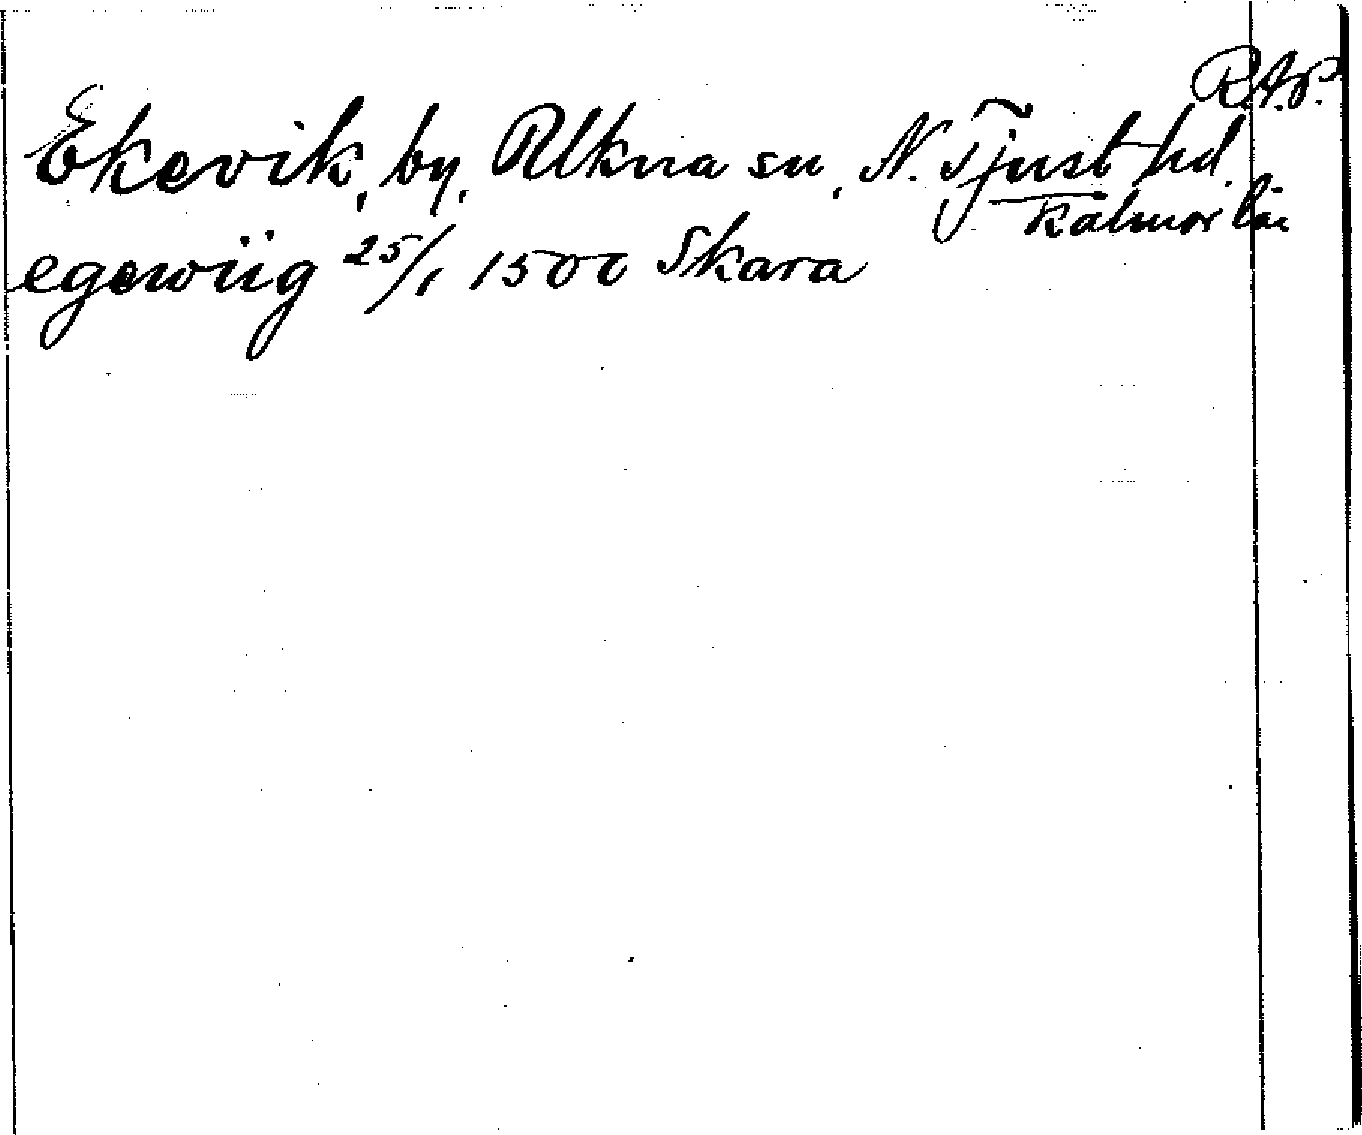 R.A.P.
Ekevik, by, Ukna sn, N. Tjust hd.
Kalmar län
egewiig 25/1 1500 Skara